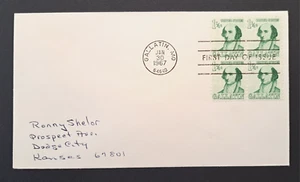 GALLATIN, MO
JAN
30
1967
64640
FIRST DAY OF ISSUE
Ronny Shelor
Prospect Ave.
Dodge City
Kansas 67801